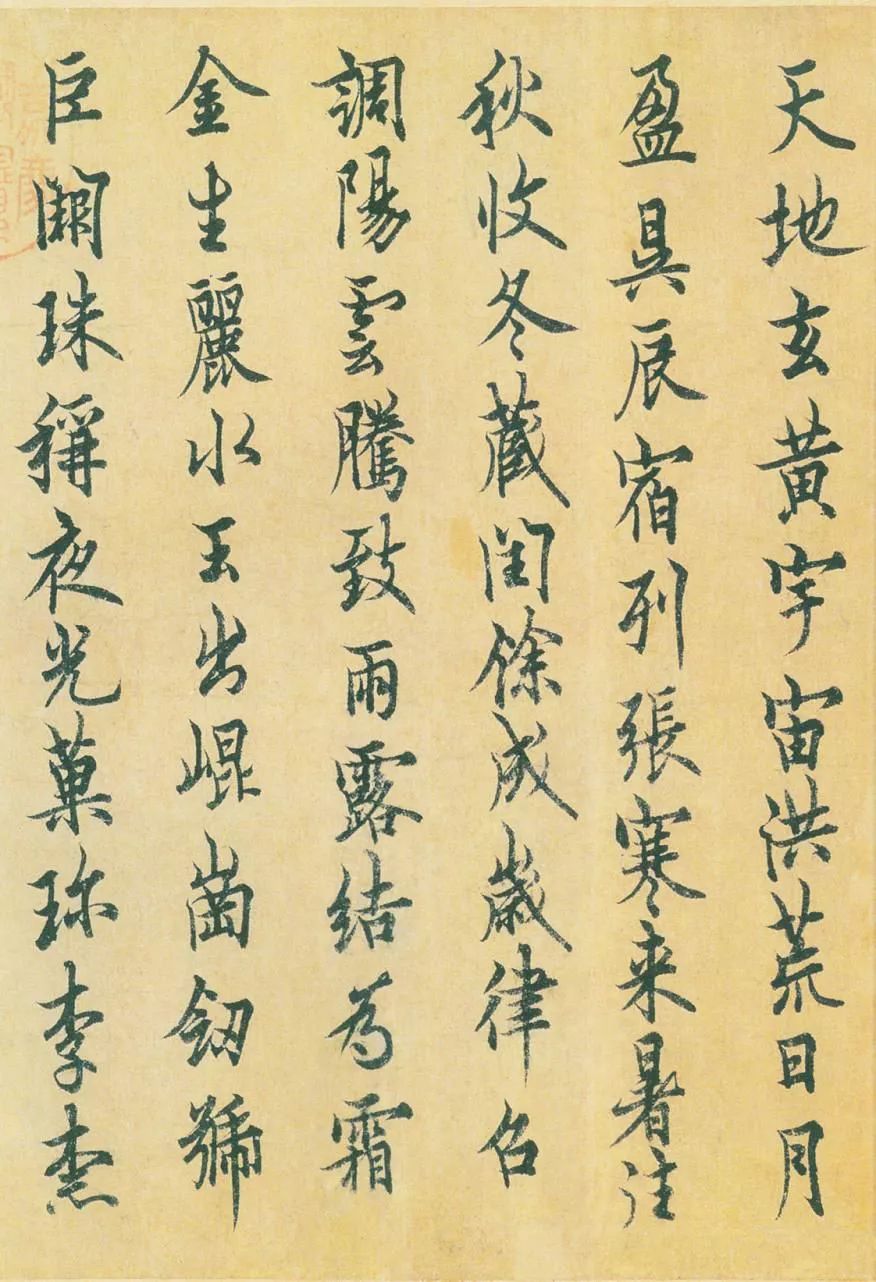 天地玄黄宇宙洪荒日月
盈昃辰宿列張寒来暑往
秋收冬蔵閏餘成歳律召
調陽雲騰致雨露結為霜
金生麗水玉出崐崗劒號
巨闕珠稱夜光菓珎李柰